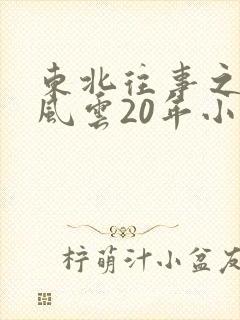 東北往事之
風雲20年小
柠萌汁小盆友